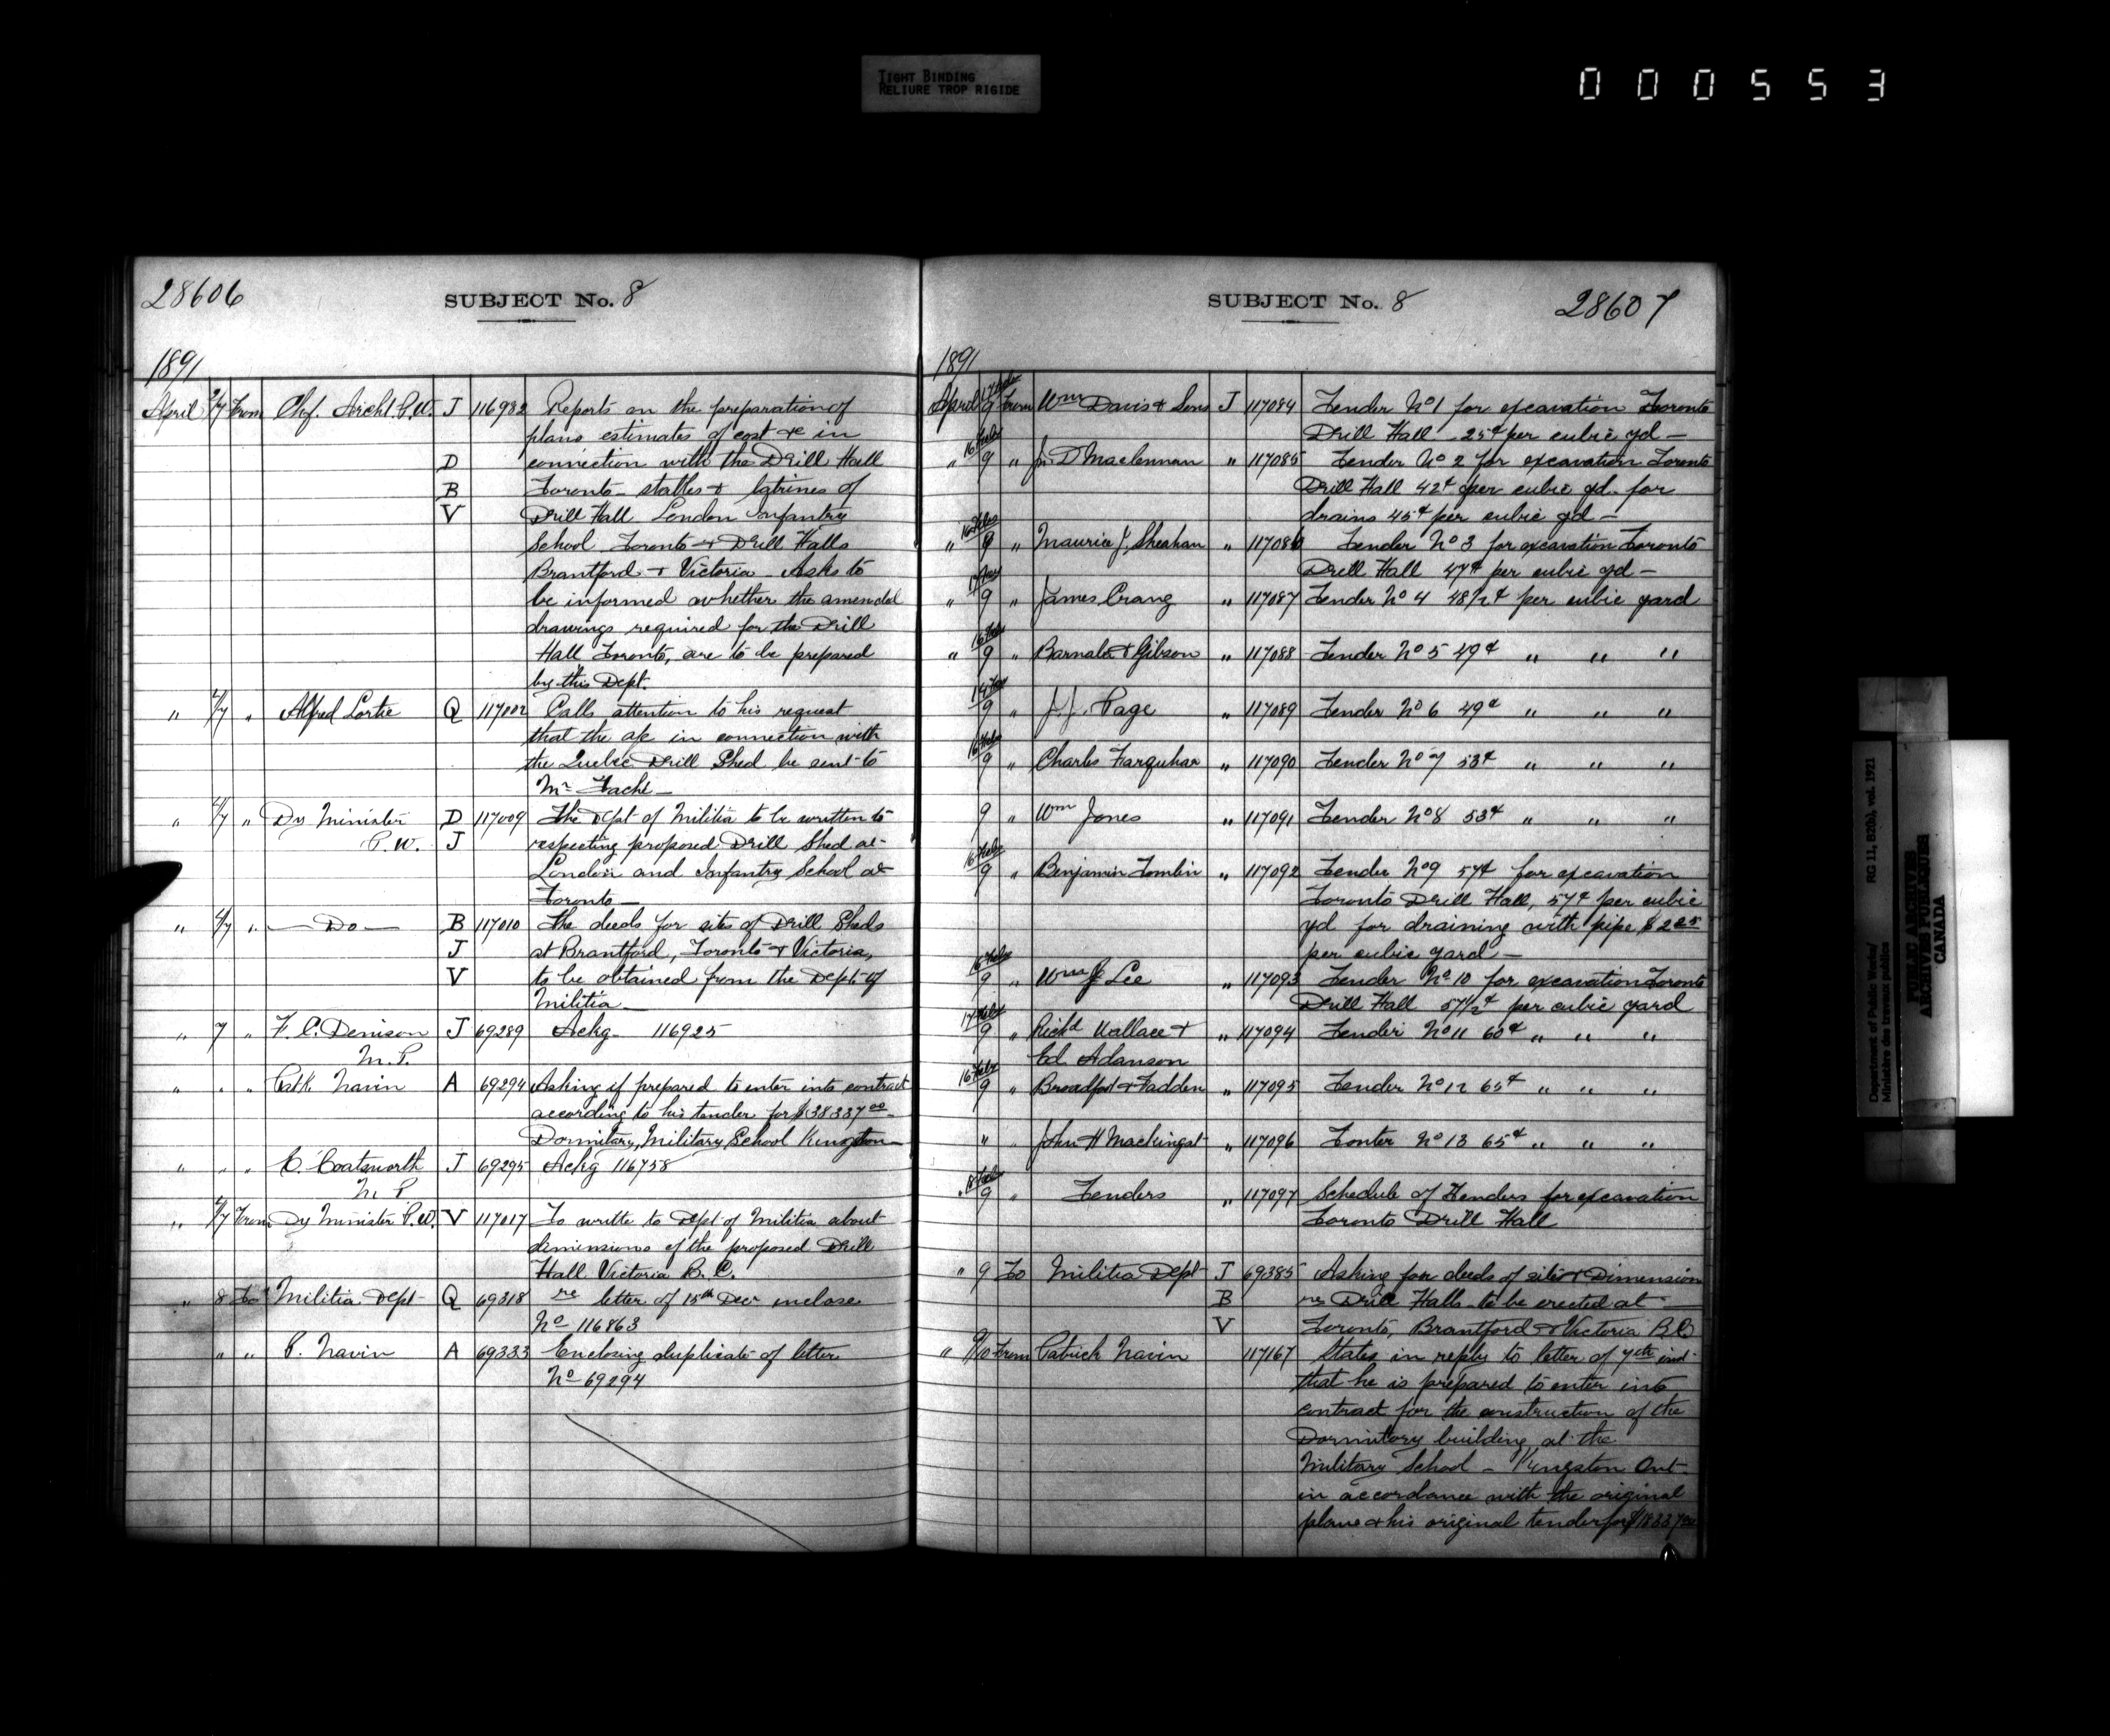 TIGHT BINDING
RELIURE TROP RIGIDE
000553
28606
SUBJECT No. 8
1891
April 2/7 From Chf. Archt. P.W. J 116982 Reports on the preparation of
plans estimates of cost &c in
D connection with the Drill Hall
B Toronto - stables & latrines of
V Drill Hall London Infantry
School Toronto & Drill Halls
Brantford & Victoria Asks to
be informed whether the amended
drawings required for the Drill
Hall Toronto, are to be prepared
by this Dept.
" /7 " Alfred Lortie Q 117002 Calls attention to his request
that the a/c in connection with
the Quebec Drill Shed be sent to
Mr Taché -
" /7 " Dy Minister D 117009 The Dept of Militia to be written to
P.W. J respecting proposed Drill Shed at
London and Infantry School at
Toronto -
" /7 " - Do - B 117010 The deeds for sites of Drill Sheds
J at Brantford, Toronto & Victoria,
V to be obtained from the Dept. of
Militia
" 7 " F. C. Denison J 69289 Ackg 116925
M.P.
" " " Patk Navin A 69294 Asking if prepared to enter into contract
according to his tender for $38337.00
Dormitary, Military School Kingston
" " " E. Coatsworth J 69295 Ackg 116758
M.P.
" /7 From Dy Minister P.W. V 117017 To write to Dept of Militia about
dimensions of the proposed Drill
Hall Victoria B. C.
" 8 To Militia Dept Q 69318 re letter of 15th Decr inclose
No 116863
" " P. Navin A 69333 Enclosing duplicate of letter
No 69294
SUBJECT No. 8
28607
1891
April 17 Feby 9 From Wm Davis & Sons J 117084 Tender No 1 for excavation Toronto
Drill Hall 25¢ per cubic yd -
" 16 Feby 9 " Jn D Maclennan " 117085 Tender No 2 for excavation Toronto
Drill Hall 42¢ per cubic yd. for
drains 45¢ per cubic yd -
" 16 Feby 9 " Maurice J. Sheahan " 117086 Tender No 3 for excavation Toronto
Drill Hall 47¢ per cubic yd -
" 9 " James Crang " 117087 Tender No 4 48½¢ per cubic yard
" 16 Feby 9 " Barnabe & Gibson " 117088 Tender No 5 49¢ " " "
9 " J. J. Page " 117089 Tender No 6 49¢ " " "
16 Feby 9 " Charles Farquhar " 117090 Tender No 7 53¢ " " "
9 " Wm Jones " 117091 Tender No 8 53¢ " " "
16 Feby 9 " Benjamin Tomlin " 117092 Tender No 9 57¢ for excavation
Toronto Drill Hall, 57¢ per cubic
yd for draining with pipe $2.25
per cubic yard -
16 Feby 9 " Wm J Lee " 117093 Tender No 10 for excavation Toronto
Drill Hall 57½¢ per cubic yard
17 Feby 9 " Richd Wallace & " 117094 Tender No 11 60¢ " " "
Ed Adanson
16 Feby 9 " Broadfoot & Fadden " 117095 Tender No 12 65¢ " " "
" " John H Mackingat " 117096 Tonter No 13 65¢ " " "
" 18 Feby 9 " Tenders " 117097 Schedule of Tenders for excavation
Toronto Drill Hall
" 9 To Militia Dept J 69385 Asking for deeds of site & Dimension
B re Drill Halls to be erected at
V Toronto, Brantford & Victoria B.C.
" 9/10 From Patrick Navin 117167 States in reply to letter of 7th inst
that he is prepared to enter into
contract for the construction of the
Dormitory building, at the
Military School - Kingston Ont-
in accordance with the original
plans & his original tender for
Department of Public Works/ RG 11, B2(b), vol. 1921
Ministère des travaux publics
PUBLIC ARCHIVES
ARCHIVES PUBLIQUES
CANADA